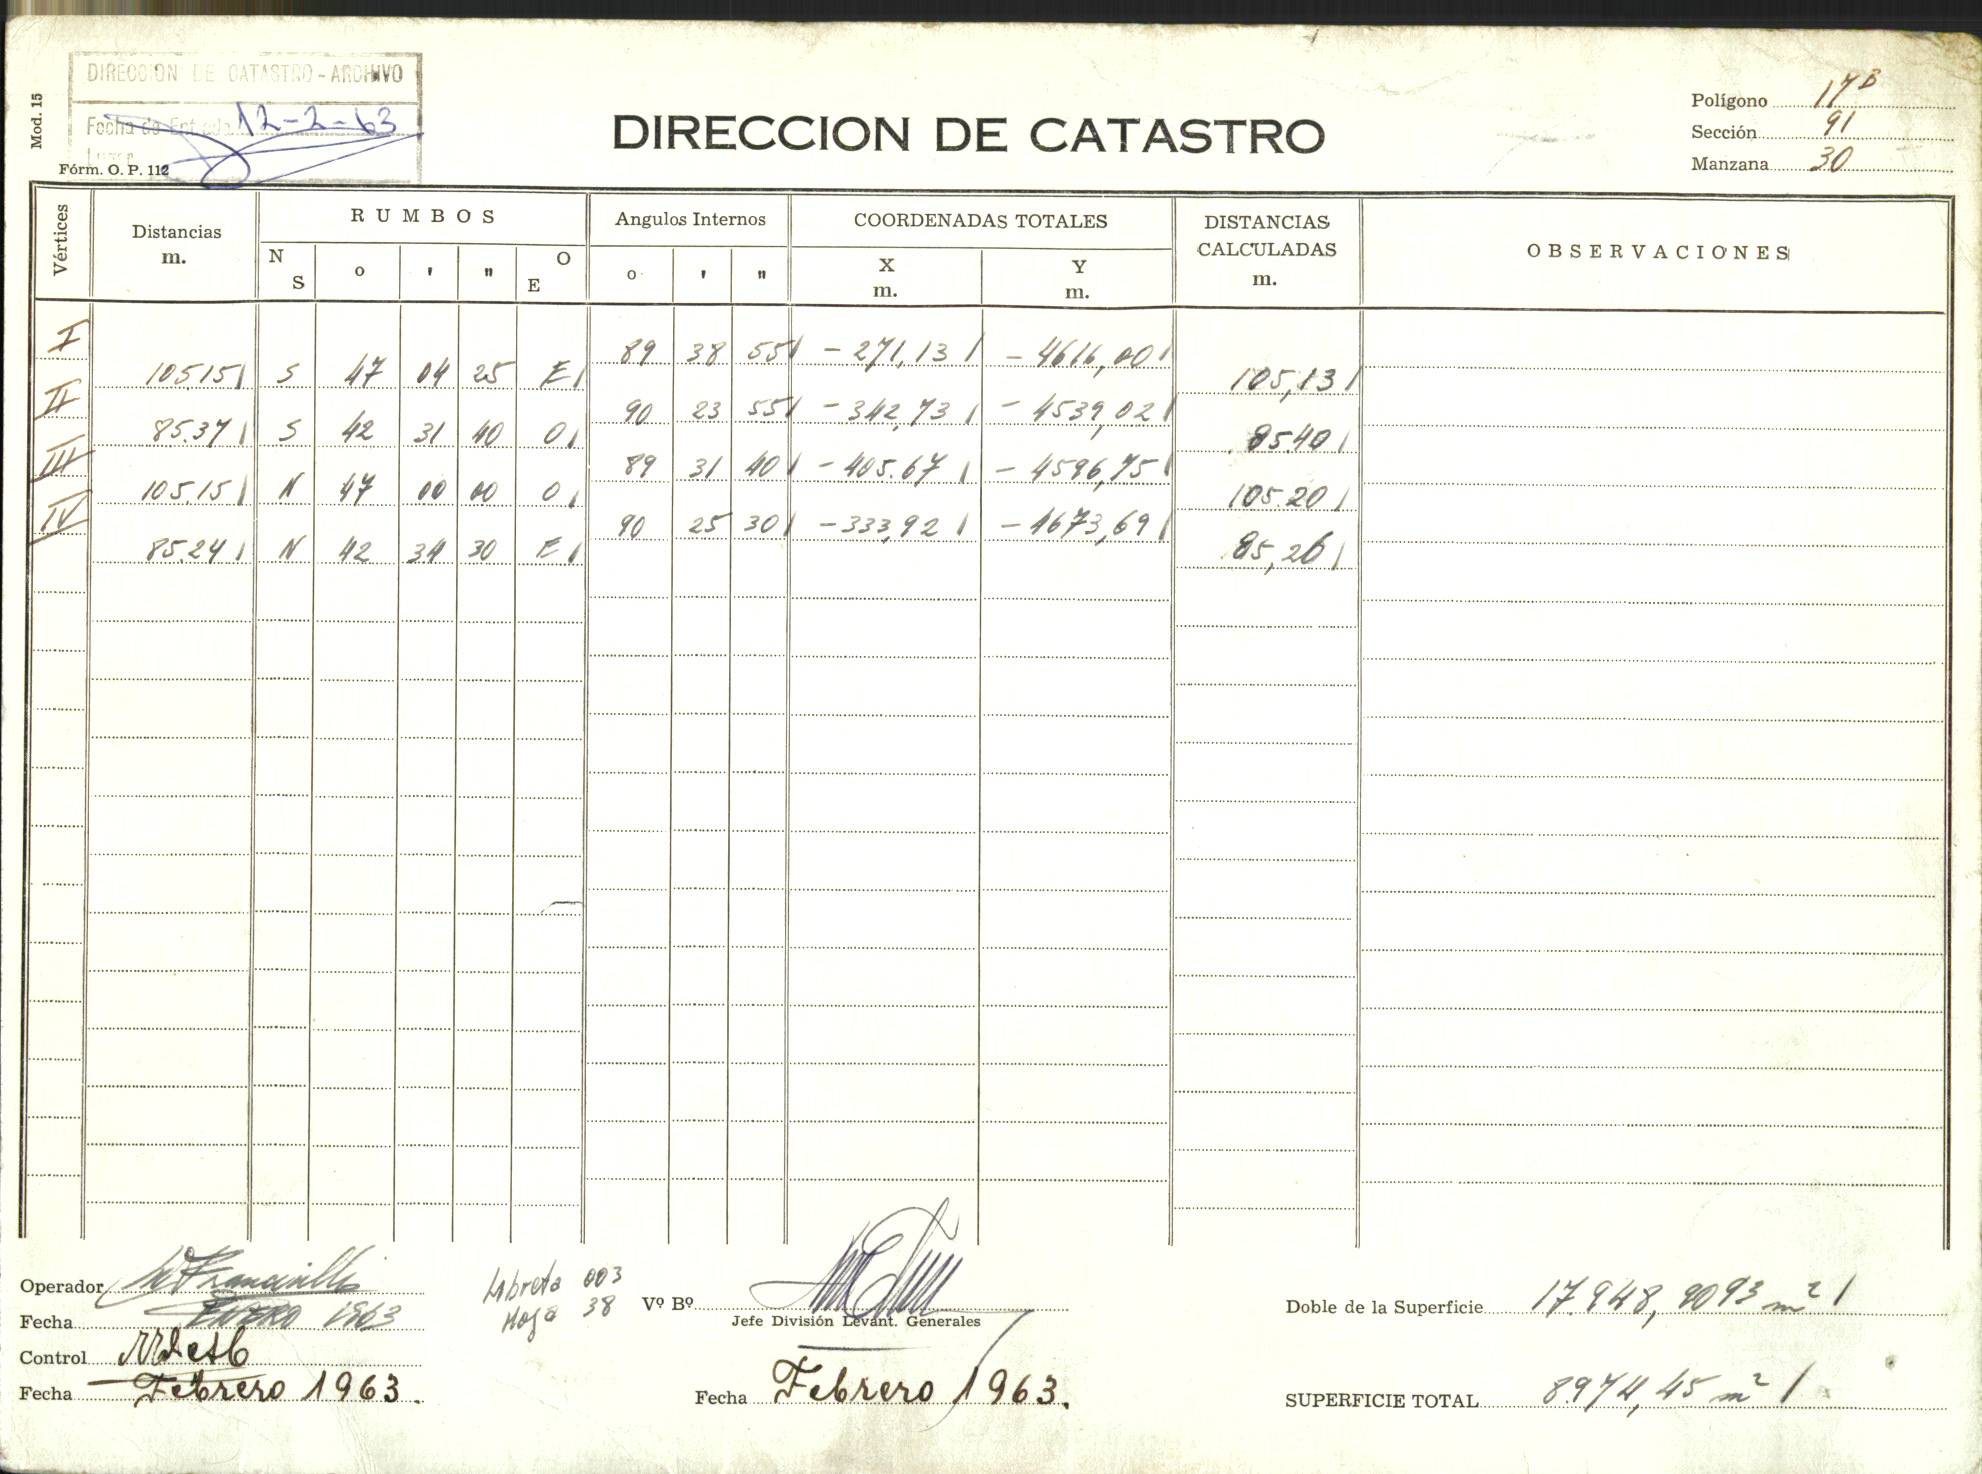 Mod. 15
DIRECCION DE CATASTRO - ARCHIVO
Fecha de Entrada 12-2-63
Lugar
Fórm. O. P. 112
DIRECCION DE CATASTRO
Polígono 17B
Sección 91
Manzana 30
Vértices Distancias m. RUMBOS Angulos Internos COORDENADAS TOTALES DISTANCIAS CALCULADAS m. OBSERVACIONES
N S o ' " O E o ' " X m. Y m.
I 89 38 55 -271,13 -4616,00
105.15 S 47 04 25 E 105,13
II 90 23 55 -342,73 -4539,02
85.37 S 42 31 40 O 85.40
III 89 31 40 -405.67 -4596,75
105.15 N 47 00 00 O 105.20
IV 90 25 30 -333,92 -4673,69
85.24 N 42 34 30 E 85,26
Operador
Fecha ENERO 1963
Control
Fecha Febrero 1963.
Libreta 003
Hoja 38
Vº Bº
Jefe División Levant. Generales
Fecha Febrero 1963.
Doble de la Superficie 17.948,9093 m2
SUPERFICIE TOTAL 8.974,45 m2